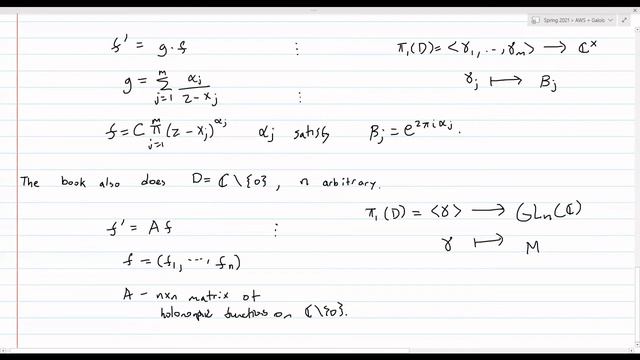 Spring 2021 > AWS + Galois
f' = g·f ⋮ π₁(D) = <γ₁, ..., γₘ> → ℂˣ
g = Σⱼ₌₁ᵐ αⱼ/(z-xⱼ) ⋮ γⱼ ↦ Bⱼ
f = C Πⱼ₌₁ᵐ (z-xⱼ)^αⱼ αⱼ satisfy Bⱼ = e^(2πiαⱼ).
The book also does D = ℂ \ {0}, n arbitrary.
f' = Af ⋮ π₁(D) = <γ> → GLₙ(ℂ)
f = (f₁, ..., fₙ) γ ↦ M
A - n×n matrix of
holomorphic functions on ℂ\{0}.